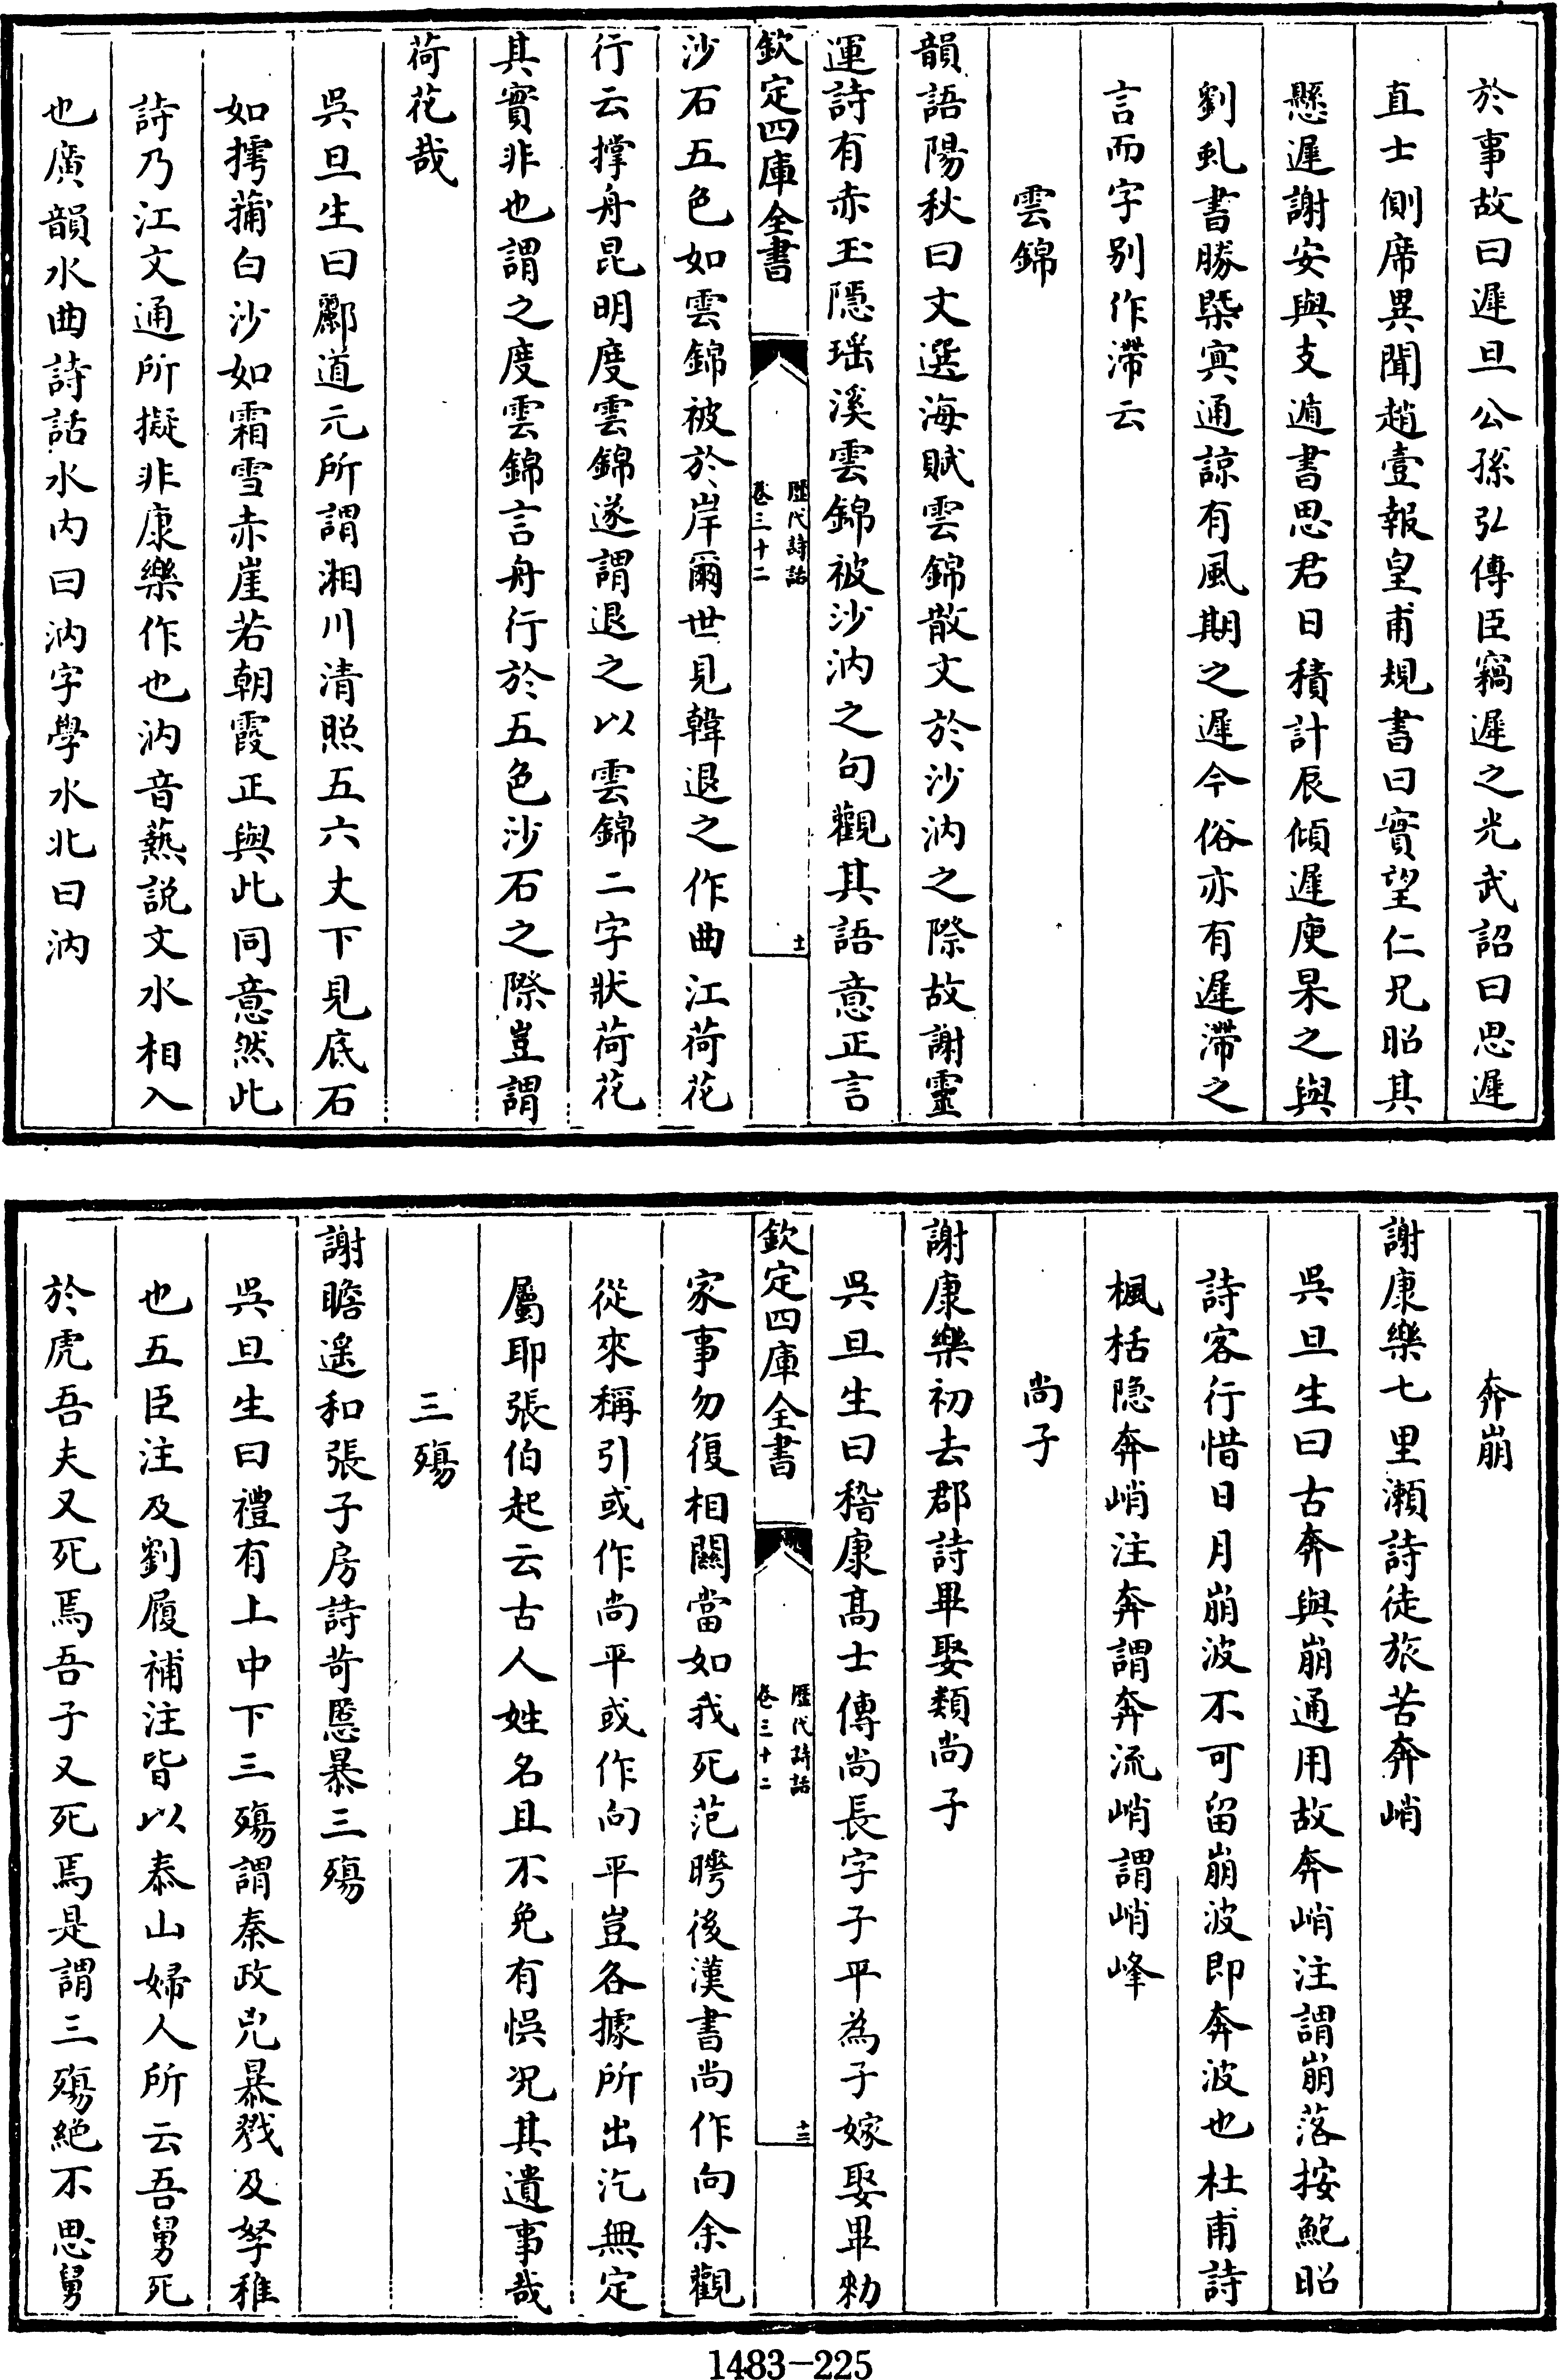 於事故曰遲旦公孫弘傳臣竊遲之光武詔曰思遲
直士側席異聞趙壹報皇甫規書曰實望仁兄昭其
懸遲謝安與支遁書思君日積計辰傾遲庾杲之與
劉虬書勝槩㝠通諒有風期之遲今俗亦有遲滯之
言而字别作滯云
雲錦
韻語陽秋曰文選海賦雲錦散文於沙汭之際故謝靈
運詩有赤玉隱瑶溪雲錦被沙汭之句觀其語意正言
欽定四庫全書
歷代詩話
卷三十二
十二
沙石五色如雲錦被於岸爾世見韓退之作曲江荷花
行云撑舟昆明度雲錦遂謂退之以雲錦二字狀荷花
其實非也謂之度雲錦言舟行於五色沙石之際豈謂
荷花哉
吳旦生曰酈道元所謂湘川清照五六丈下見底石
如摴蒱白沙如霜雪赤崖若朝霞正與此同意然此
詩乃江文通所擬非康樂作也汭音爇説文水相入
也廣韻水曲詩話水内曰汭字學水北曰汭
奔崩
謝康樂七里瀨詩徒旅苦奔峭
吳旦生曰古奔與崩通用故奔峭注謂崩落按鮑昭
詩客行惜日月崩波不可留崩波即奔波也杜甫詩
楓栝隐奔峭注奔謂奔流峭謂峭峰
尚子
謝康樂初去郡詩畢娶類尚子
吳旦生曰嵇康髙士傳尚長字子平為子嫁娶畢勑
欽定四庫全書
歷代詩話
卷三十二
十三
家事勿復相關當如我死范曄後漢書尚作向余觀
從來稱引或作尚平或作向平豈各據所出汔無定
屬耶張伯起云古人姓名且不免有悞况其遺事哉
三殤
謝瞻遥和張子房詩苛慝暴三殤
吳旦生曰禮有上中下三殤謂秦政兇暴戮及孥稚
也五臣注及劉履補注皆以泰山婦人所云吾舅死
於虎吾夫又死焉吾子又死焉是謂三殤絶不思舅
1483-225